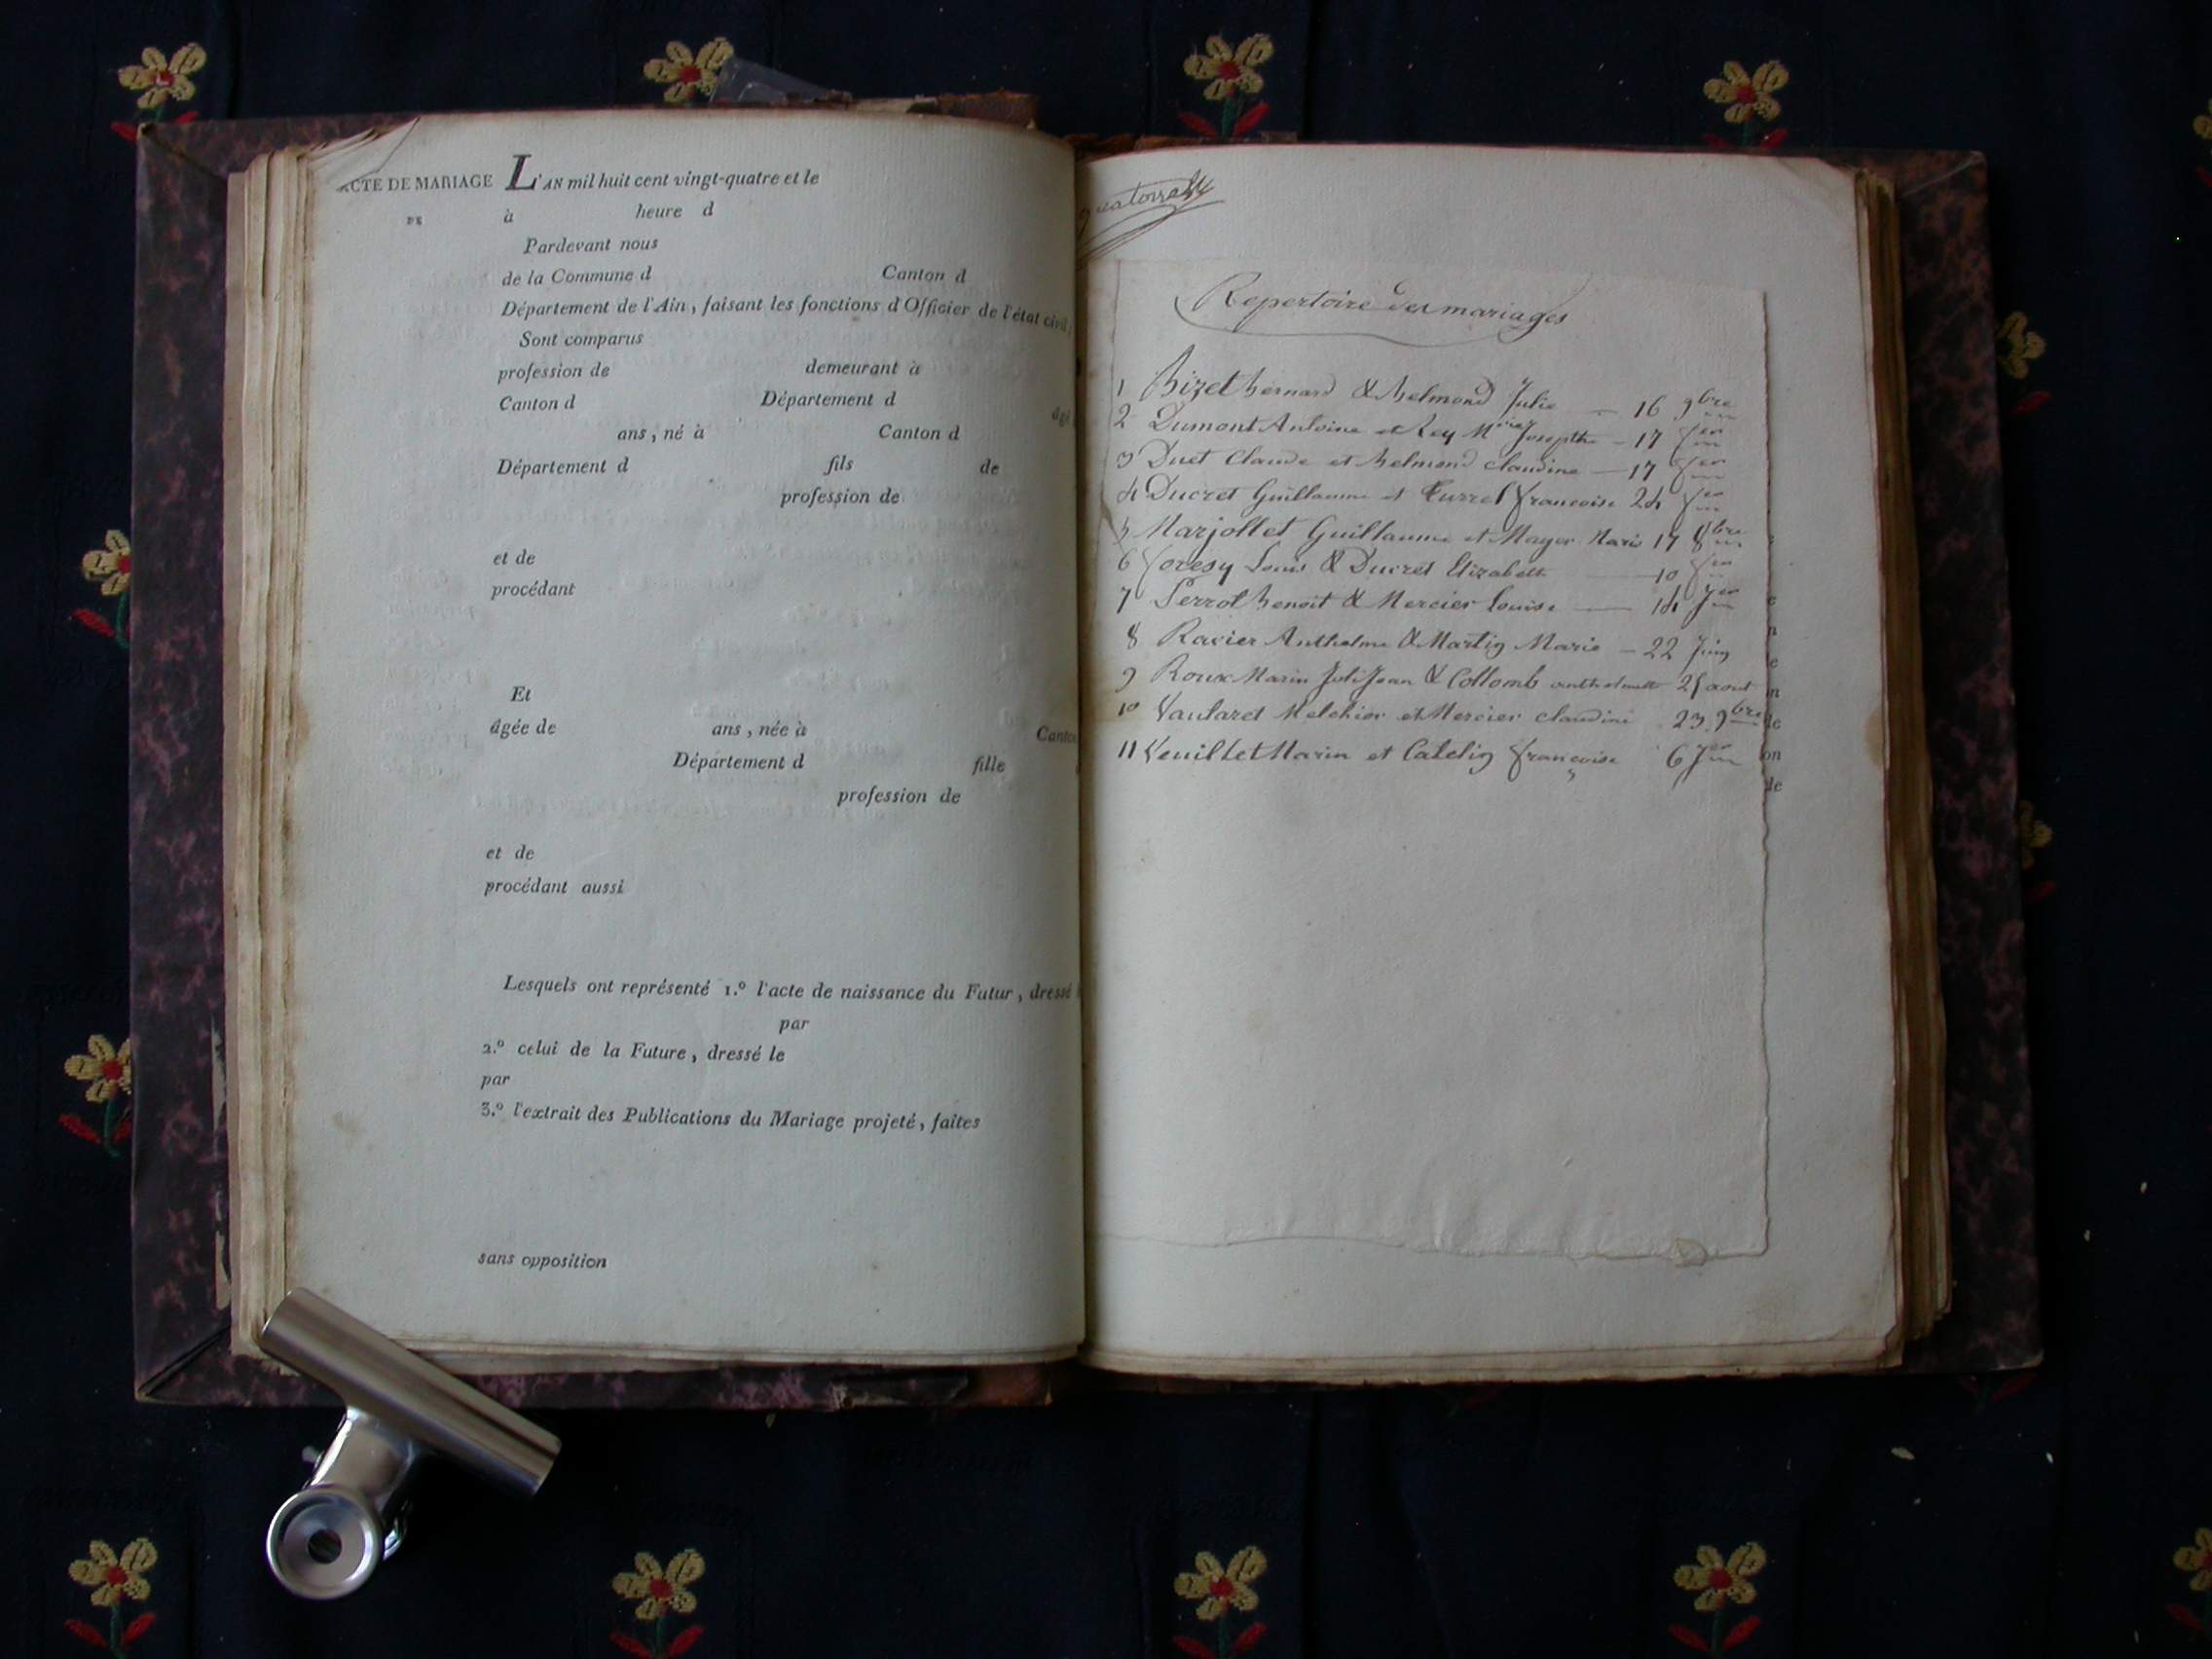 ACTE DE MARIAGE L'AN mil huit cent vingt-quatre et le
DE à heure d
Pardevant nous
de la Commune d Canton d
Département de l'Ain, faisant les fonctions d'Officier de l'état civil,
Sont comparus
profession de demeurant à
Canton d Département d
âgé
ans, né à Canton d
Département d fils de
profession de
et de
procédant
Et
âgée de ans, née à Canton
Département d fille
profession de
et de
procédant aussi
Lesquels ont représenté 1.º l'acte de naissance du Futur, dressé
par
2.º celui de la Future, dressé le
par
3.º l'extrait des Publications du Mariage projeté, faites
sans opposition
quatorze
Repertoire des mariages
1 Bizet Bernard & Belmond Julie — 16 9bre
2 Dumont Antoine et Rey Josepthe — 17 fer
3 Duet Claude et Belmond claudine — 17 fer
4 Ducret Guillaume et Curret francoise 24 fer
5 Marjollet Guillaume et Mayer Marie 17 8bre
6 Louis & Ducret Elizabeth — 10 fer
7 Perrot Benoit & Mercier Louise — 14 Jer
8 Racier Anthelme & Martin Marie — 22 Juin
9 Roux Marin Joli Jean & Collomb aout
10 Vaularet Melchior et Mercier claudine 23 9bre
11 Veuillet Marin et Catelin françoise 6 Jer